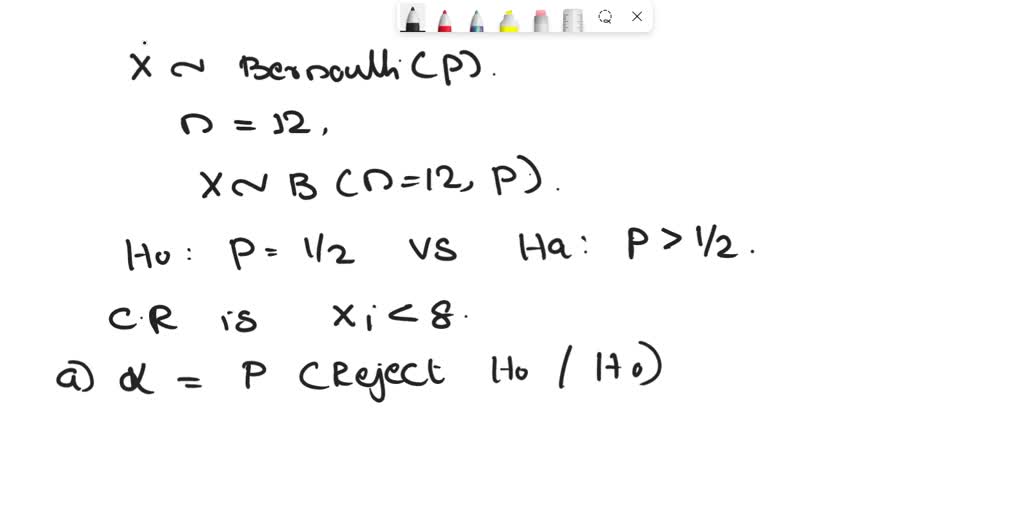 X ~ Bernoulli (P).
n = 12,
X ~ B (n=12, P).
Ho: P = 1/2 vs Ha: P > 1/2.
C.R is Xi < 8.
a) α = P (Reject Ho / Ho)